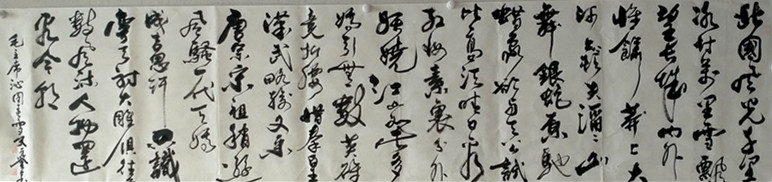 北国风光千里
冰封万里雪飘
望长城内外
惟余莽莽大
河上下顿失滔滔山
舞银蛇原驰
蜡象欲与天公试
比高须晴日看
红妆素裹分外
妖娆江山如此多
娇引无数英雄
竞折腰惜秦皇
汉武略输文采
唐宗宋祖稍逊
风骚一代天骄
成吉思汗只識
弯弓射大雕俱往矣
数风流人物还
看今朝
毛主席沁园春雪